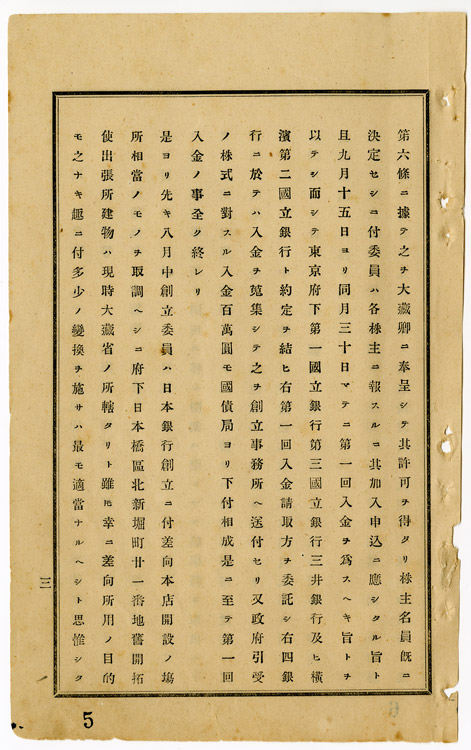 第六條ニ據テ之ヲ大藏卿ニ奉呈シテ其許可ヲ得タリ株主名員既ニ
決定セシニ付委員ハ各株主ニ報スルニ其加入申込ニ應シタル旨ト
且九月十五日ヨリ同月三十日マテニ第一回入金ヲ爲スヘキ旨トヲ
以テシ而シテ東京府下第一國立銀行第三國立銀行三井銀行及ヒ橫
濱第二國立銀行ト約定ヲ結ヒ右第一回入金請取方ヲ委託シ右四銀
行ニ於テハ入金ヲ蒐集シテ之ヲ創立事務所ヘ送付セリ又政府引受
ノ株式ニ對スル入金百萬圓モ國債局ヨリ下付相成是ニ至テ第一回
入金ノ事全ク終レリ
是ヨリ先キ八月中創立委員ハ日本銀行創立ニ付差向本店開設ノ塲
所相當ノモノヲ取調ヘシニ府下日本橋區北新堀町廿一番地舊開拓
使出張所建物ハ現時大藏省ノ所轄タリト雖𪜈幸ニ差向所用ノ目的
モ之ナキ趣ニ付多少ノ變換ヲ施サハ最モ適當ナルヘシト思惟シタ
三
5